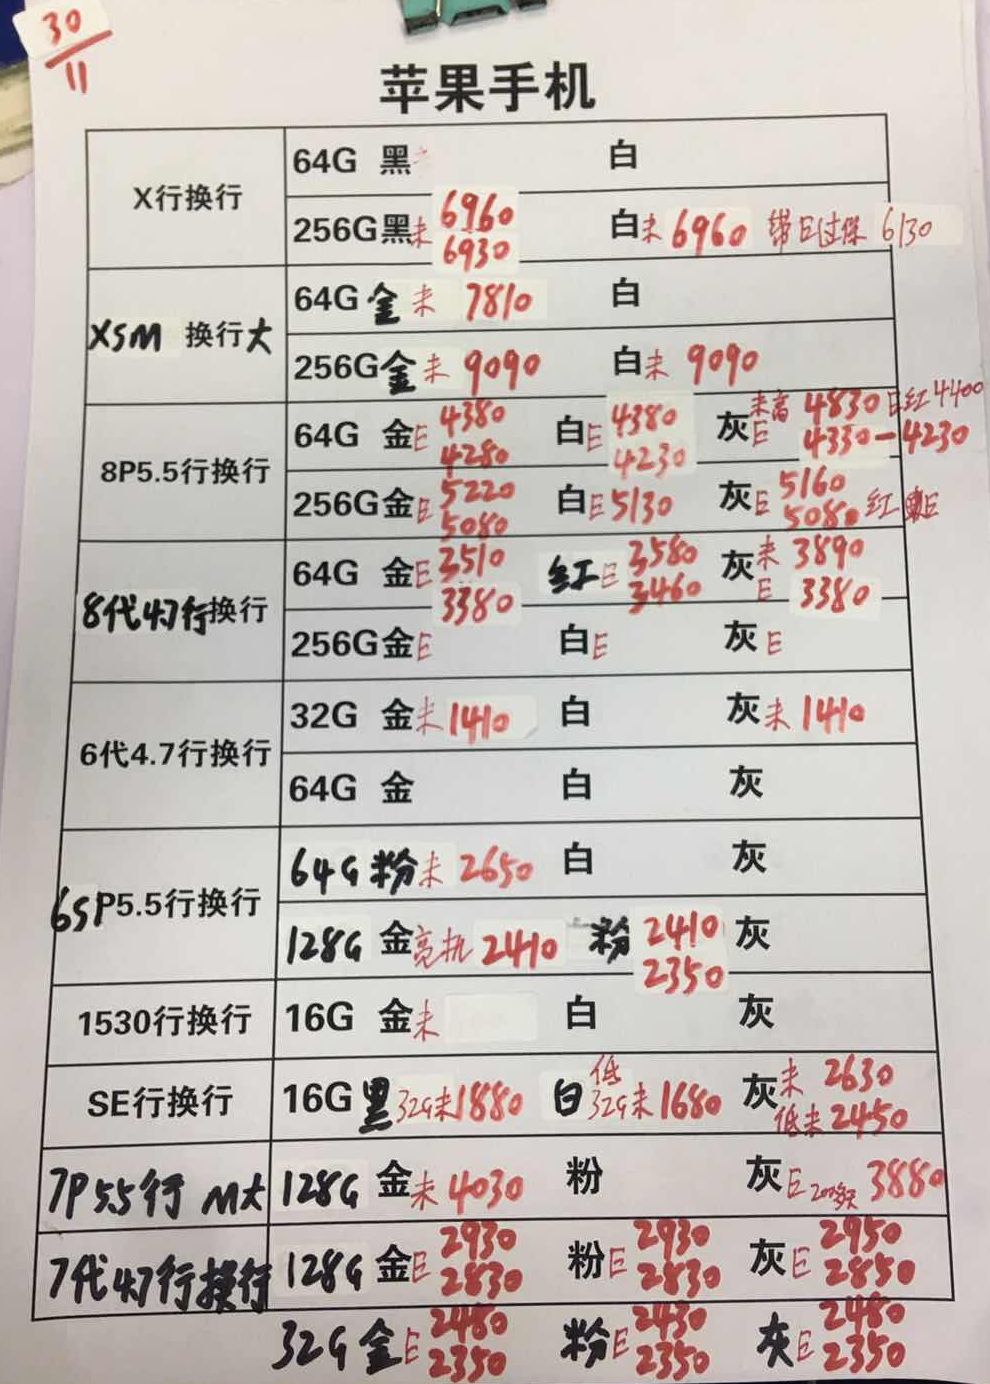 30
11
苹果手机
X行换行
64G 黑 白
256G黑未 6960 6930 白未 6960 带E过保 6130
XSM 换行大
64G 金 未 7810 白
256G金 未 9090 白未 9090
8P5.5行换行
64G 金E 4380 4280 白E 4380 4230 灰 未高 4830 E红4400 E 4330-4230
256G金E 5220 5080 白E 5130 灰E 5160 5080 红 E
8代4.7行换行
64G 金E 3510 3380 红E 3580 3460 灰 未 3890 E 3380
256G金E 白E 灰E
6代4.7行换行
32G 金未 1410 白 灰未 1410
64G 金 白 灰
6SP5.5行换行
64G 粉未 2650 白 灰
128G 金 2410 粉 2410 2350 灰
1530行换行
16G 金未 白 灰
SE行换行
16G黑 32G未1880 白 低 32G未 1680 灰 未 2630 低未 2450
7P5.5行 M大
128G 金未 4030 粉 灰E 3880
7代4.7行换行
128G 金E 2930 2830 粉E 2930 2830 灰E 2950 2850
32G 金E 2480 2350 粉E 2430 2350 灰E 2480 2350